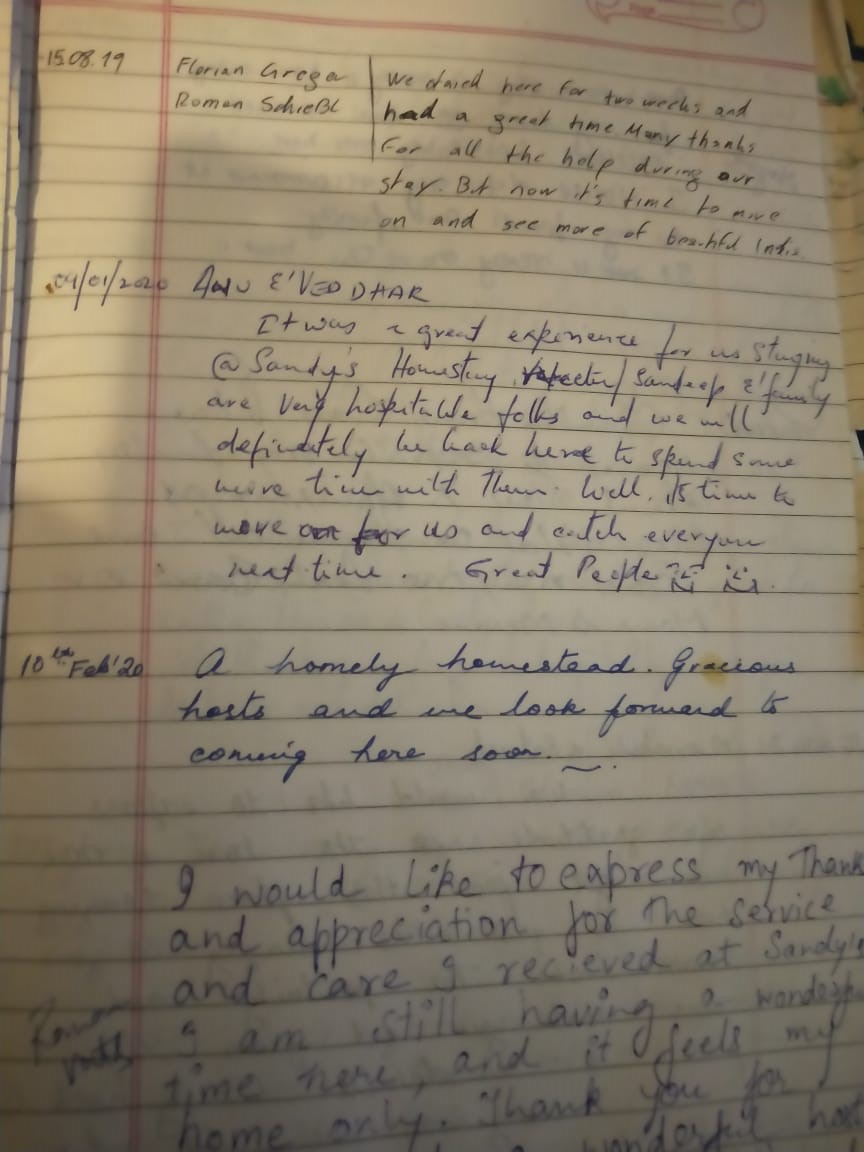 15.08.19 Florian Grega We staied here for two weeks and
Roman Schießl had a great time Many thanks
for all the help during our
stay. But now it's time to move
on and see more of beautiful India
04/01/2020 ANU &'VED DHAR
It was a great experience for us staying
@ Sandy's Homestay. Sandeep &' family
are very hospitable folks and we will
definately be back here to spend some
more time with them. Well, its time to
move on for us and catch everyone
next time. Great People
10th Feb'20 A homely homestead. Gracious
hosts and we look forward to
coming here soon.
I would like to express my Thank
and appreciation for the service
and care I recieved at Sandy's
I am still having a wonderfu
time here, and it feels my
home only. Thank you for
wonderful host